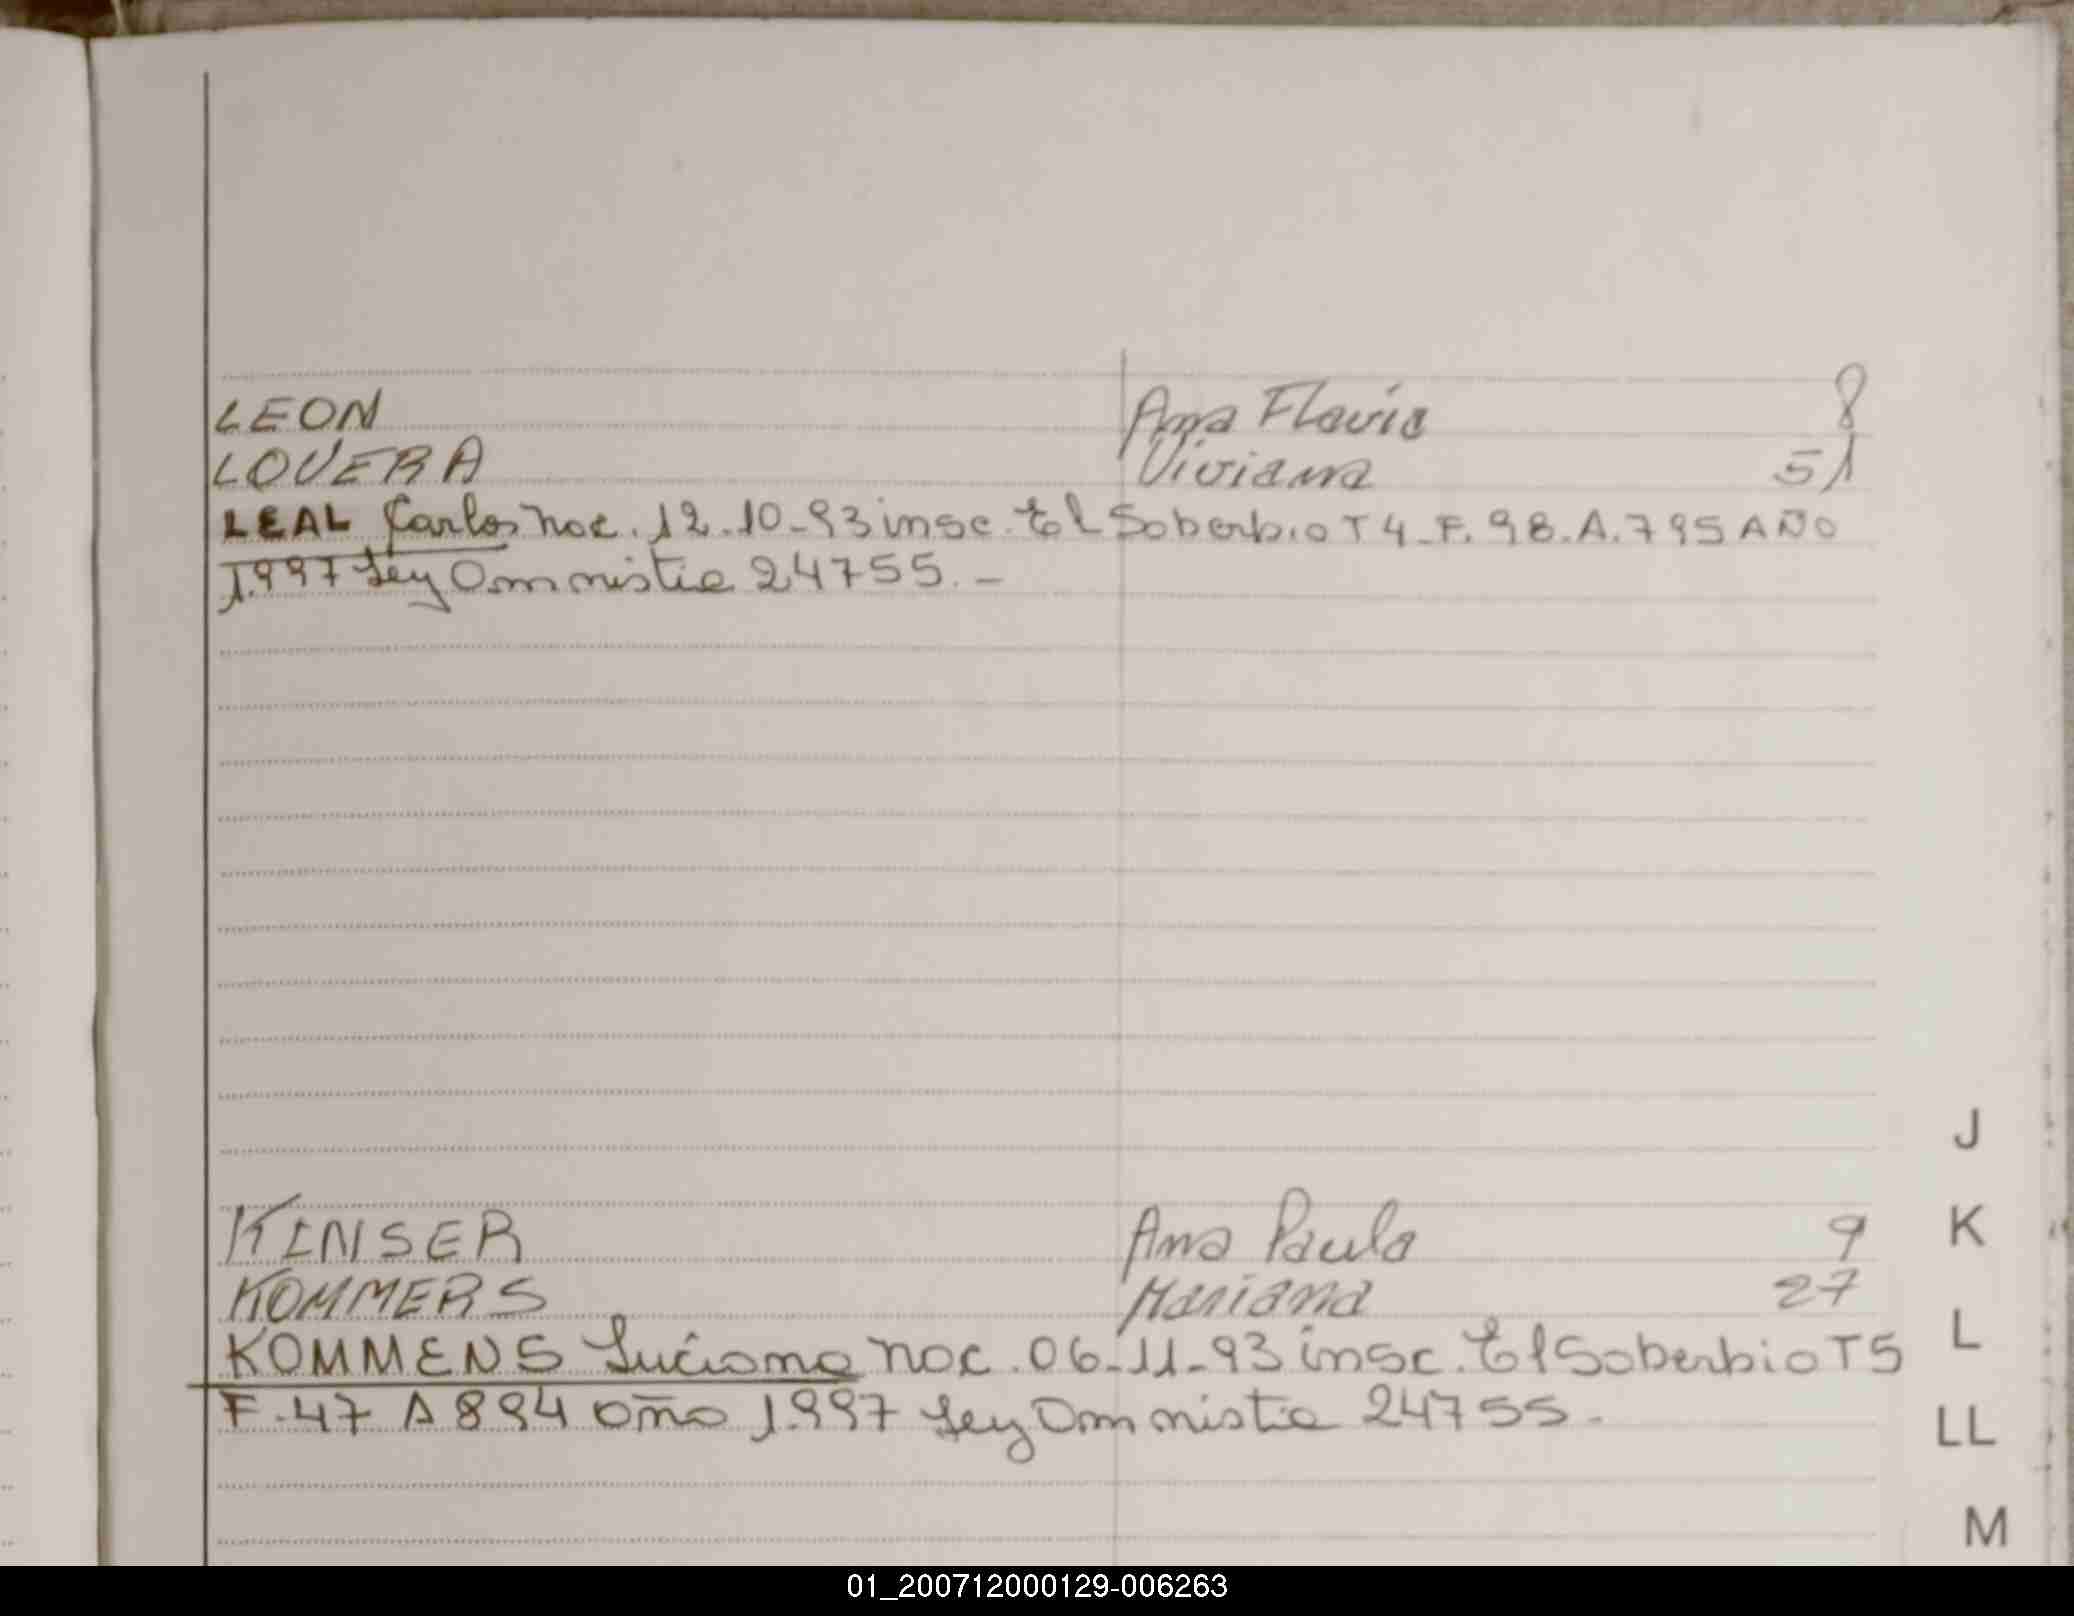 LEON Ana Flavia 8
LOVERA Viviana 51
LEAL Carlos nac. 12.10-93 insc. El Soberbio T 4-F. 98.A.795 AÑO
1.997 Ley Amnistia 24755.-
J
KINSER Ana Paula 9 K
KOMMERS Mariana 27
KOMMENS Luciana nac. 06-11-93 insc. El Soberbio T5 L
F.47 A 894 año 1.997 Ley Amnistia 24755.
LL
M
01_200712000129-006263